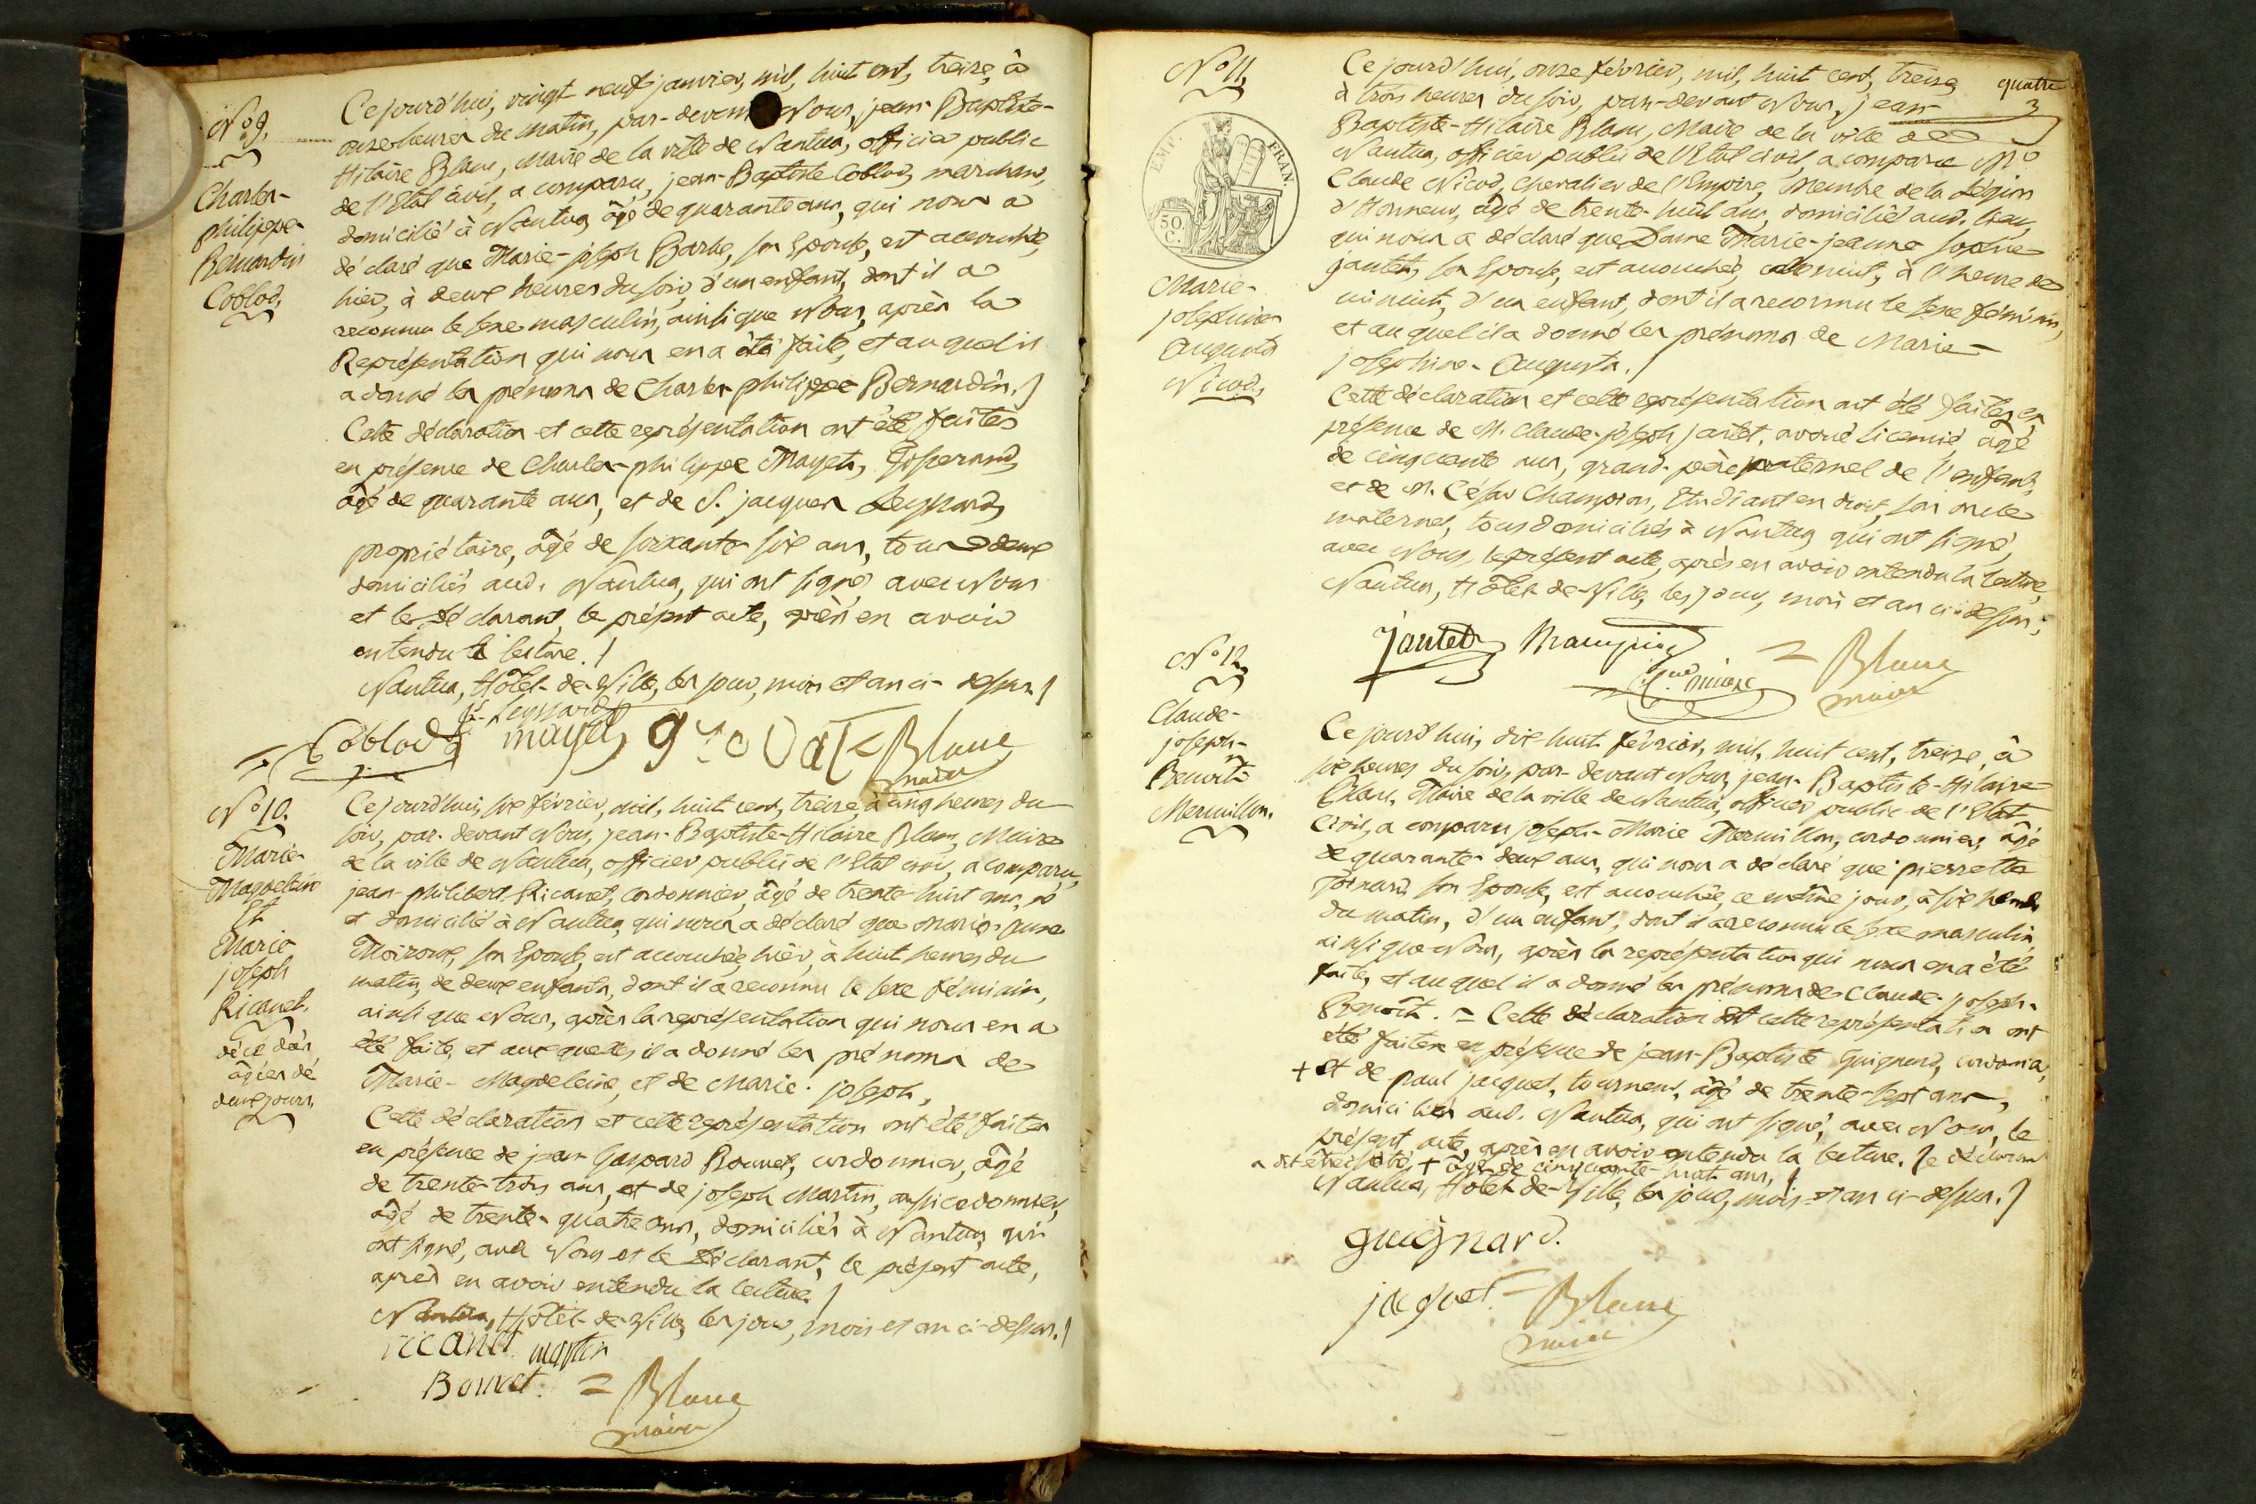 N.° 9.
Charles-
philippe-
Bernardin
Coblod,
Ce jourd'hui, vingt neuf janvier, mil, huit cent, treize, à
onze heures du matin, par-devant Nous, jean-Baptiste-
Hilaire Blanc, Maire de la ville de Nantua, officier public
de l'Etat civil, a comparu, jean-Baptiste Coblod, marchand,
domicilié à Nantua, âgé de quarante ans, qui nous a
déclaré que Marie-joseph Barbe, son Epouse, est accouchée,
hier, à deux heures du soir, d'un enfant, dont il a
reconnu le sexe masculin, ainsi que Nous, après la
Représentation qui nous en a été faite, et auquel il
a donné les prénoms de Charles philippe Bernardin./
Cette déclaration et cette représentation ont été faites
en présence de Charles-philippe Mayet,
âgé de quarante ans, et de S. jacques Leyssard,
propriétaire, âgé de soixante six ans, tous deux
domiciliés aud. Nantua, qui ont signé, avec Nous
et le déclarant, le présent acte, après en avoir
entendu la lecture./
Nantua, Hôtel-de-Ville, les jour, mois et an ci-dessus./
Leyssard
Coblod mayet Blanc
maire
N.° 10.
Marie-
Magdeleine
Et
Marie
joseph
Ricanet.
décédées
âgées de
deux jours,
Ce jourd'hui, six février, mil, huit cent, treize, à cinq heures du
soir, par-devant Nous, jean-Baptiste-Hilaire Blanc, Maire
de la ville de Nantua, officier public de l'Etat civil, a comparu,
jean-philibert Ricanet, cordonnier, âgé de trente-huit ans, né
et domicilié à Nantua, qui nous a déclaré que marie-anne
Moiroux, son Epouse, est accouchée, hier, à huit heures du
matin, de deux enfants, dont il a reconnu le sexe féminin,
ainsi que Nous, après la représentation qui nous en a
été faite, et auxquelles il a donné les prénoms de
Marie-Magdeleine, et de Marie-joseph,
Cette déclaration et cette représentation ont été faites
en présence de jean Gaspard Bonnet, cordonnier, âgé
de trente-trois ans, et de joseph Martin, aussi cordonnier,
âgé de trente-quatre ans, domiciliés à Nantua, qui
ont signé, avec Nous et le déclarant, le présent acte,
après en avoir entendu la lecture./
Nantua, Hôtel-de-Ville, les jour, mois et an ci-dessus./
ricanet martin
Bonnet. = Blanc
maire
quatre
3
N.° 11,
EMP: FRAN.
50 C.
Marie-
josephine
Augusta
Nicod,
Ce jourd'hui, onze février, mil, huit cent, treize
à trois heures du soir, par-devant Nous, jean-
Baptiste-Hilaire Blanc, Maire de la ville de
Nantua, officier public de l'Etat civil, a comparu Mr
Claude Nicod, Chevalier de l'Empire, Membre de la Légion
d'Honneur, âgé de trente-huit ans, domicilié aud. lieu,
qui nous a déclaré que Dame Marie-jeanne Sophie
jantet, son Epouse, est accouchée, cette nuit, à l'heure de
minuit, d'un enfant, dont il a reconnu le sexe féminin,
et auquel il a donné les prénoms de Marie-
josephine-Augusta./
Cette déclaration et cette représentation ont été faites en
présence de M. Claude-joseph jantet, avoué licencié, âgé
de cinquante ans, grand-père paternel de l'enfant,
et de M. César Champion, Etudiant en droit, son oncle
maternel, tous domiciliés à Nantua, qui ont signé,
avec Nous, le présent acte, après en avoir entendu la lecture,
Nantua, Hôtel-de-Ville, les jour, mois et an ci-dessus;
Jantet = Blanc
maire
N.° 12,
Claude-
joseph-
Benoit
Mermillon.
Ce jourd'hui, dix huit février, mil, huit cent, treize, à
six heures du soir, par-devant Nous, jean-Baptiste-Hilaire
Blanc, Maire de la ville de Nantua, officier public de l'Etat
Civil, a comparu joseph-Marie Mermillon, cordonnier, âgé
de quarante-deux ans, qui nous a déclaré que pierrette
son Epouse, est accouchée, ce même jour, à six heures
du matin, d'un enfant, dont il a reconnu le sexe masculin,
ainsi que Nous, après la représentation qui nous en a été
faite, et auquel il a donné les prénoms de Claude-joseph-
Benoit. = Cette déclaration et cette représentation ont
été faites en présence de jean-Baptiste Guignard, cordonnier,
+ et de paul jacquet, tourneur, âgé de trente-sept ans,
domiciliés aud. Nantua, qui ont signé, avec Nous, le
présent acte, après en avoir entendu la lecture. le déclarant
a dit être illétré, + âgé de cinquante-huit ans,
Nantua, Hôtel-de-Ville, les jour, mois et an ci-dessus./
guignard.
jacquet. = Blanc
maire